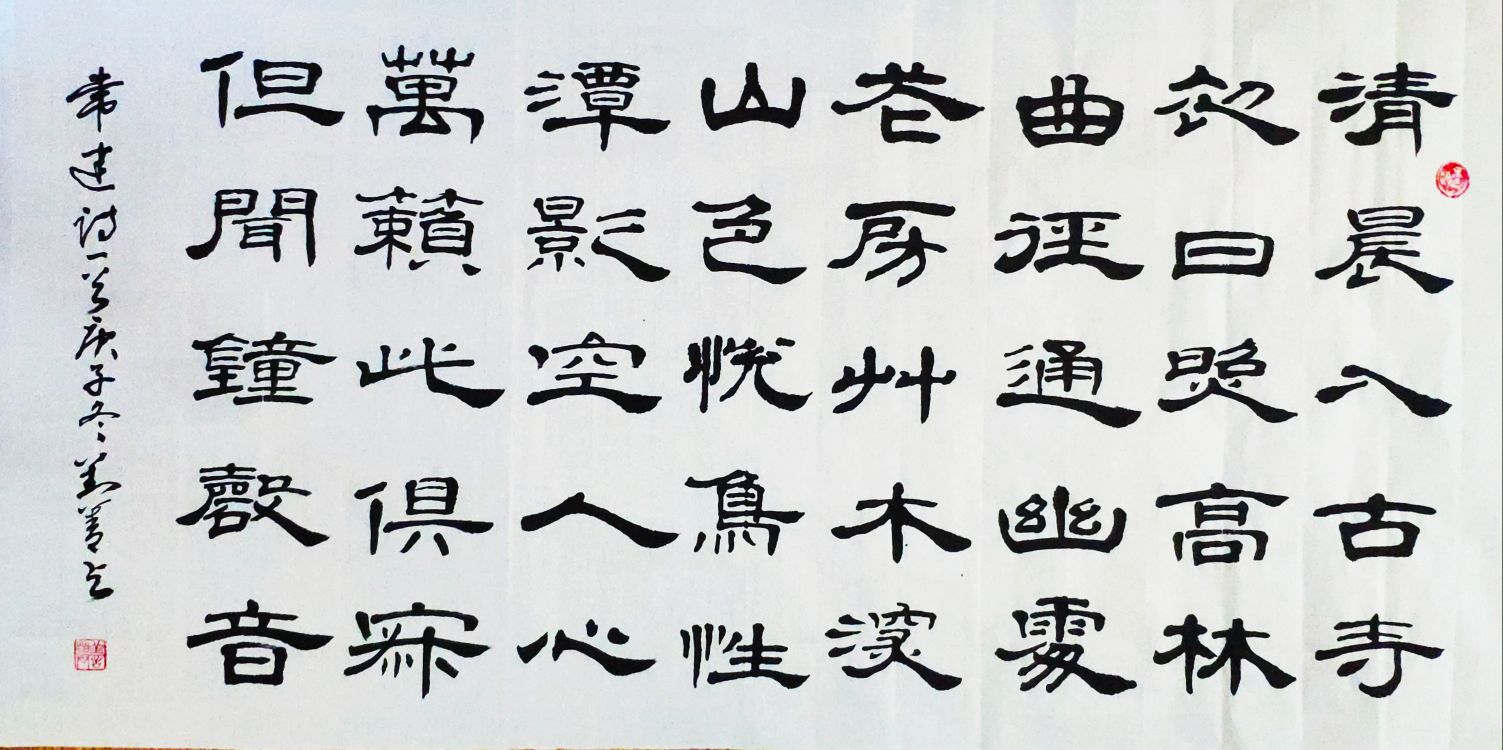 清晨入古寺
初日照高林
曲徑通幽處
房艸木深
山色悦鳥性
潭影空人心
萬籟此俱寂
但聞鐘磬音
常建詩一首庚子冬